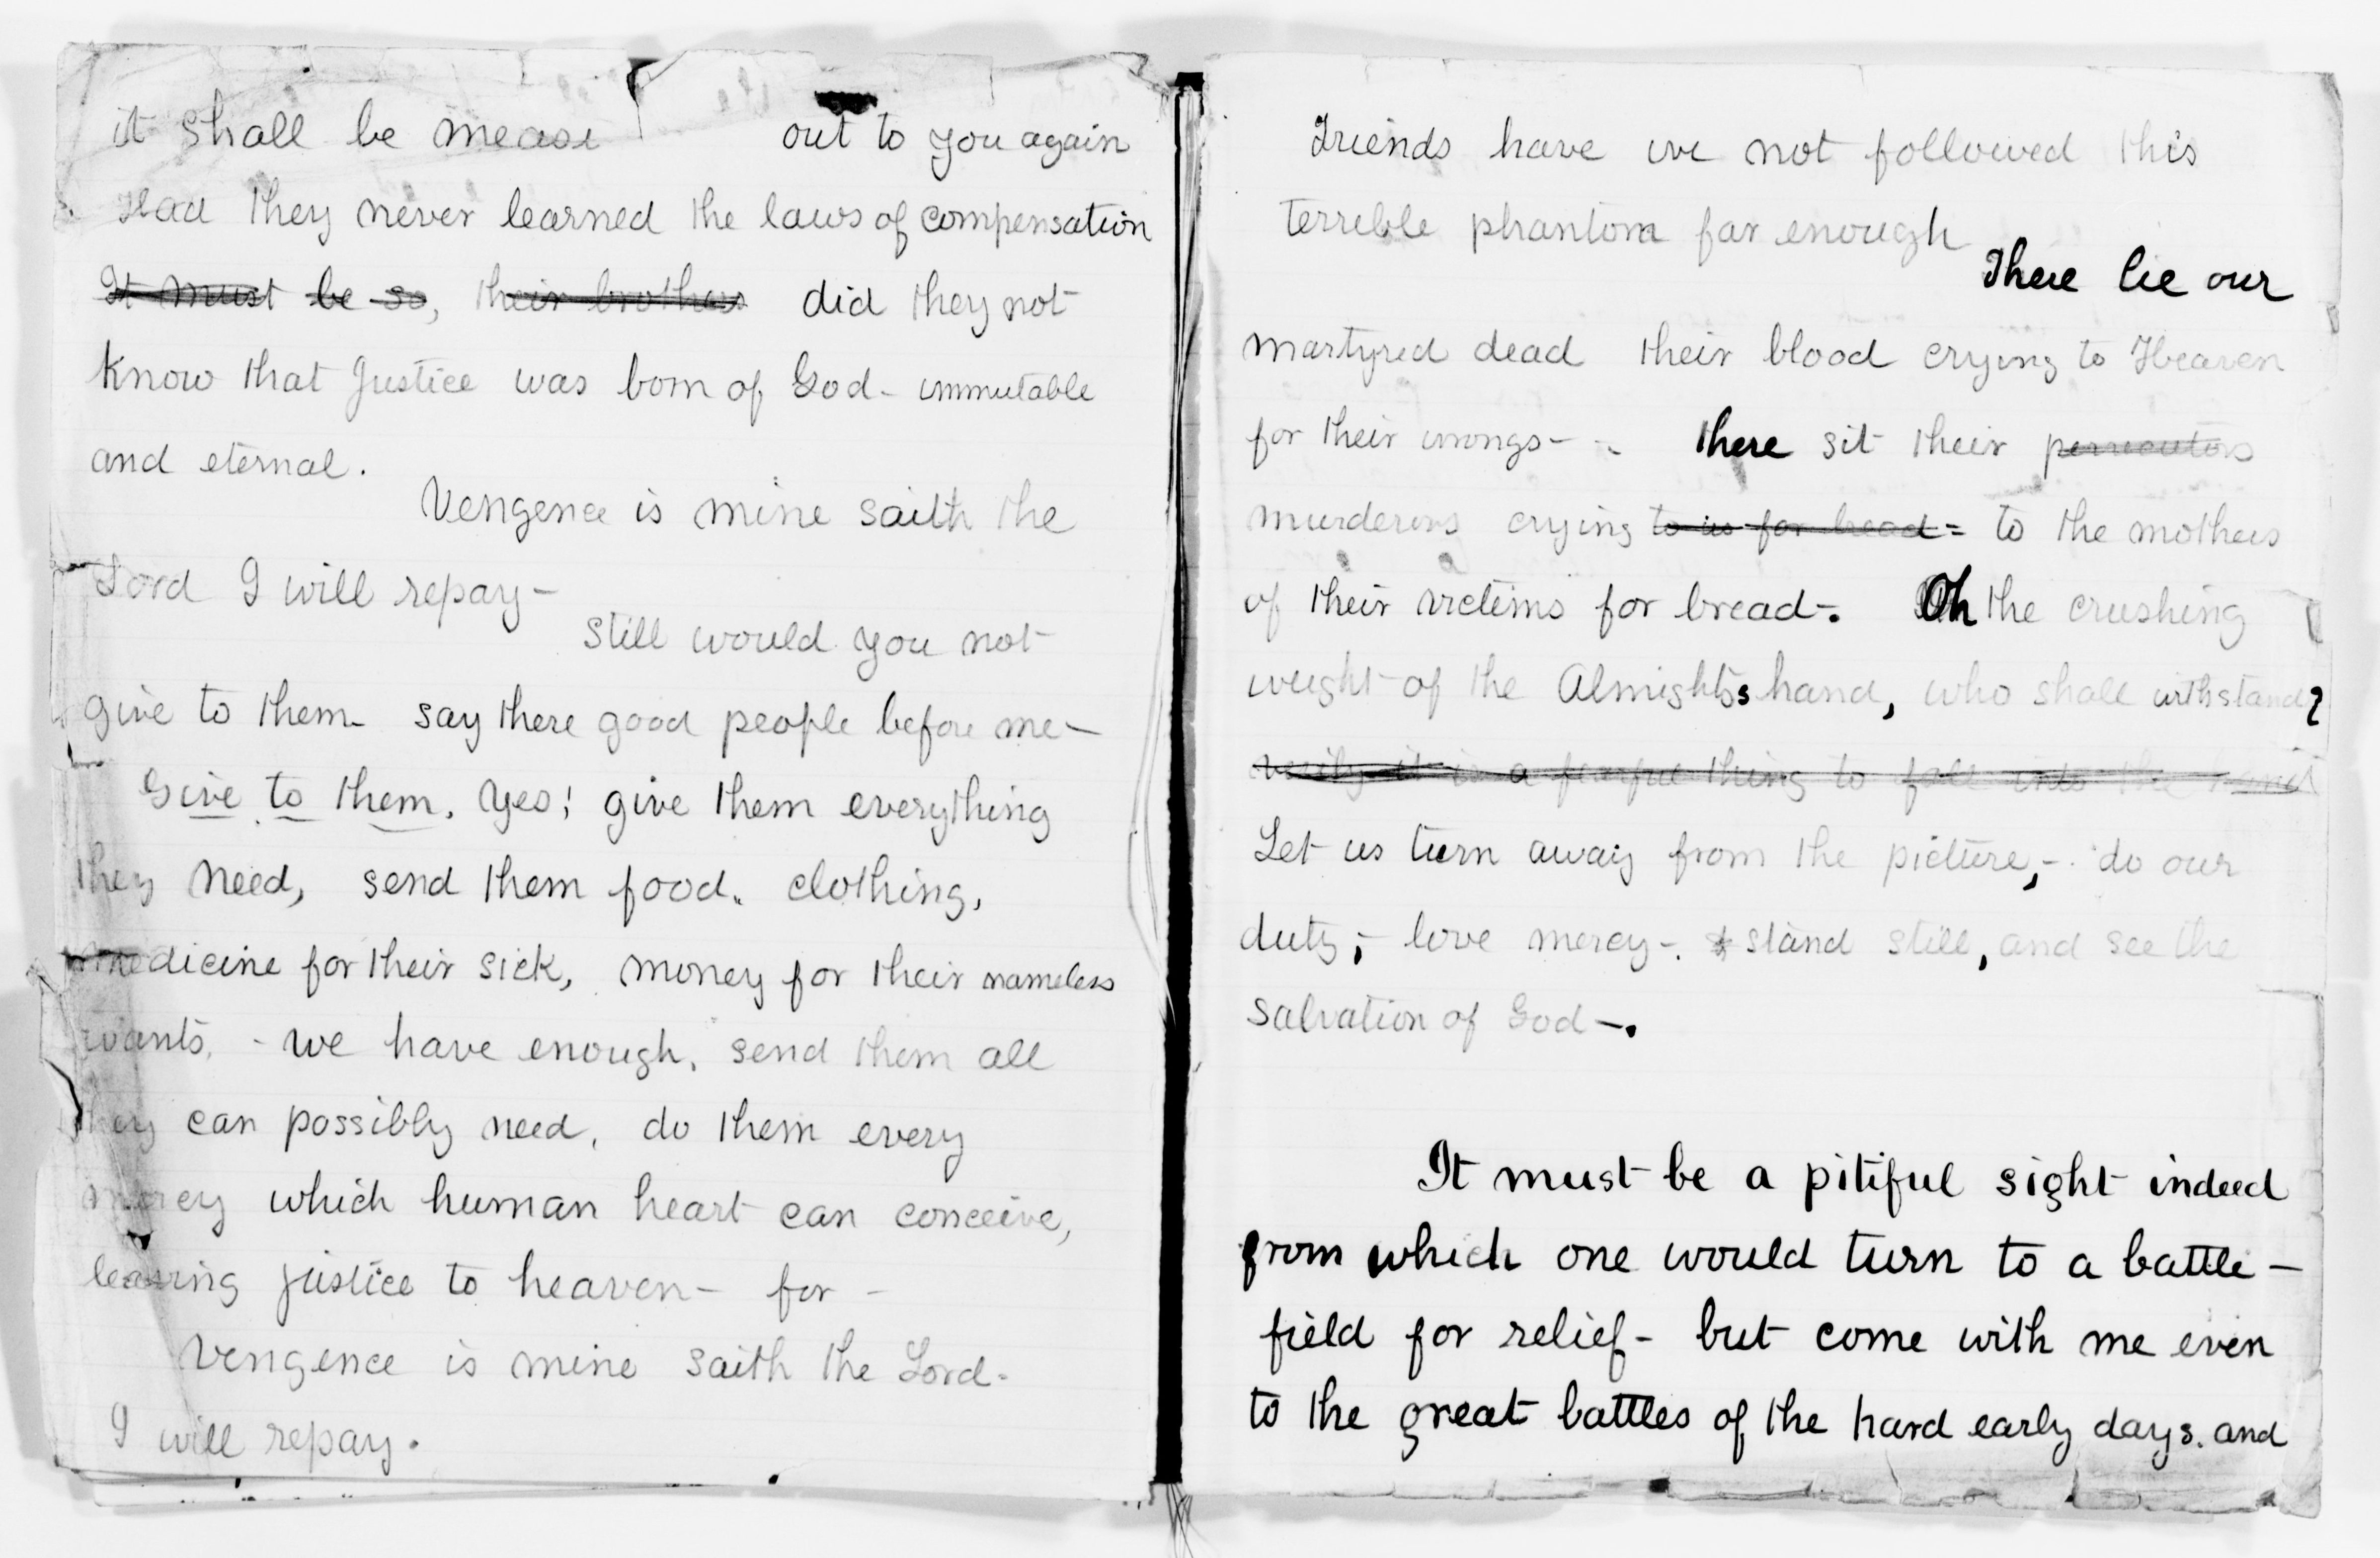 it shall be meas out to you again
Had they never learned the laws of compensation
It must be so, their brothers did they not
know that Justice was born of God - immutable
and eternal.
Vengence is mine saith the
Lord I will repay -
Still would you not
give to them - say there good people before me -
Give to them. Yes! give them everything
they need, send them food. clothing,
medicine for their sick, money for their nameless
wants. - we have enough, send them all
they can possibly need, do them every
mercy which human heart can conceive,
leaving justice to heaven - for -
Vengence is mine saith the Lord -
I will repay.
Friends have we not followed this
terrible phantom far enough
There lie our
martyred dead their blood crying to Heaven
for their wrongs - - there sit their persecutors
murderers crying to us for bread = to the mothers
of their victims for bread -. Oh the crushing
weight of the Almightys hand, who shall withstand?
verily it is a fearful thing to fall into the hand
Let us turn away from the picture, - do our
duty, - love mercy -. & stand still, and see the
salvation of God -.
It must be a pitiful sight indeed
from which one would turn to a battle -
field for relief - but come with me even
to the great battles of the hard early days. and